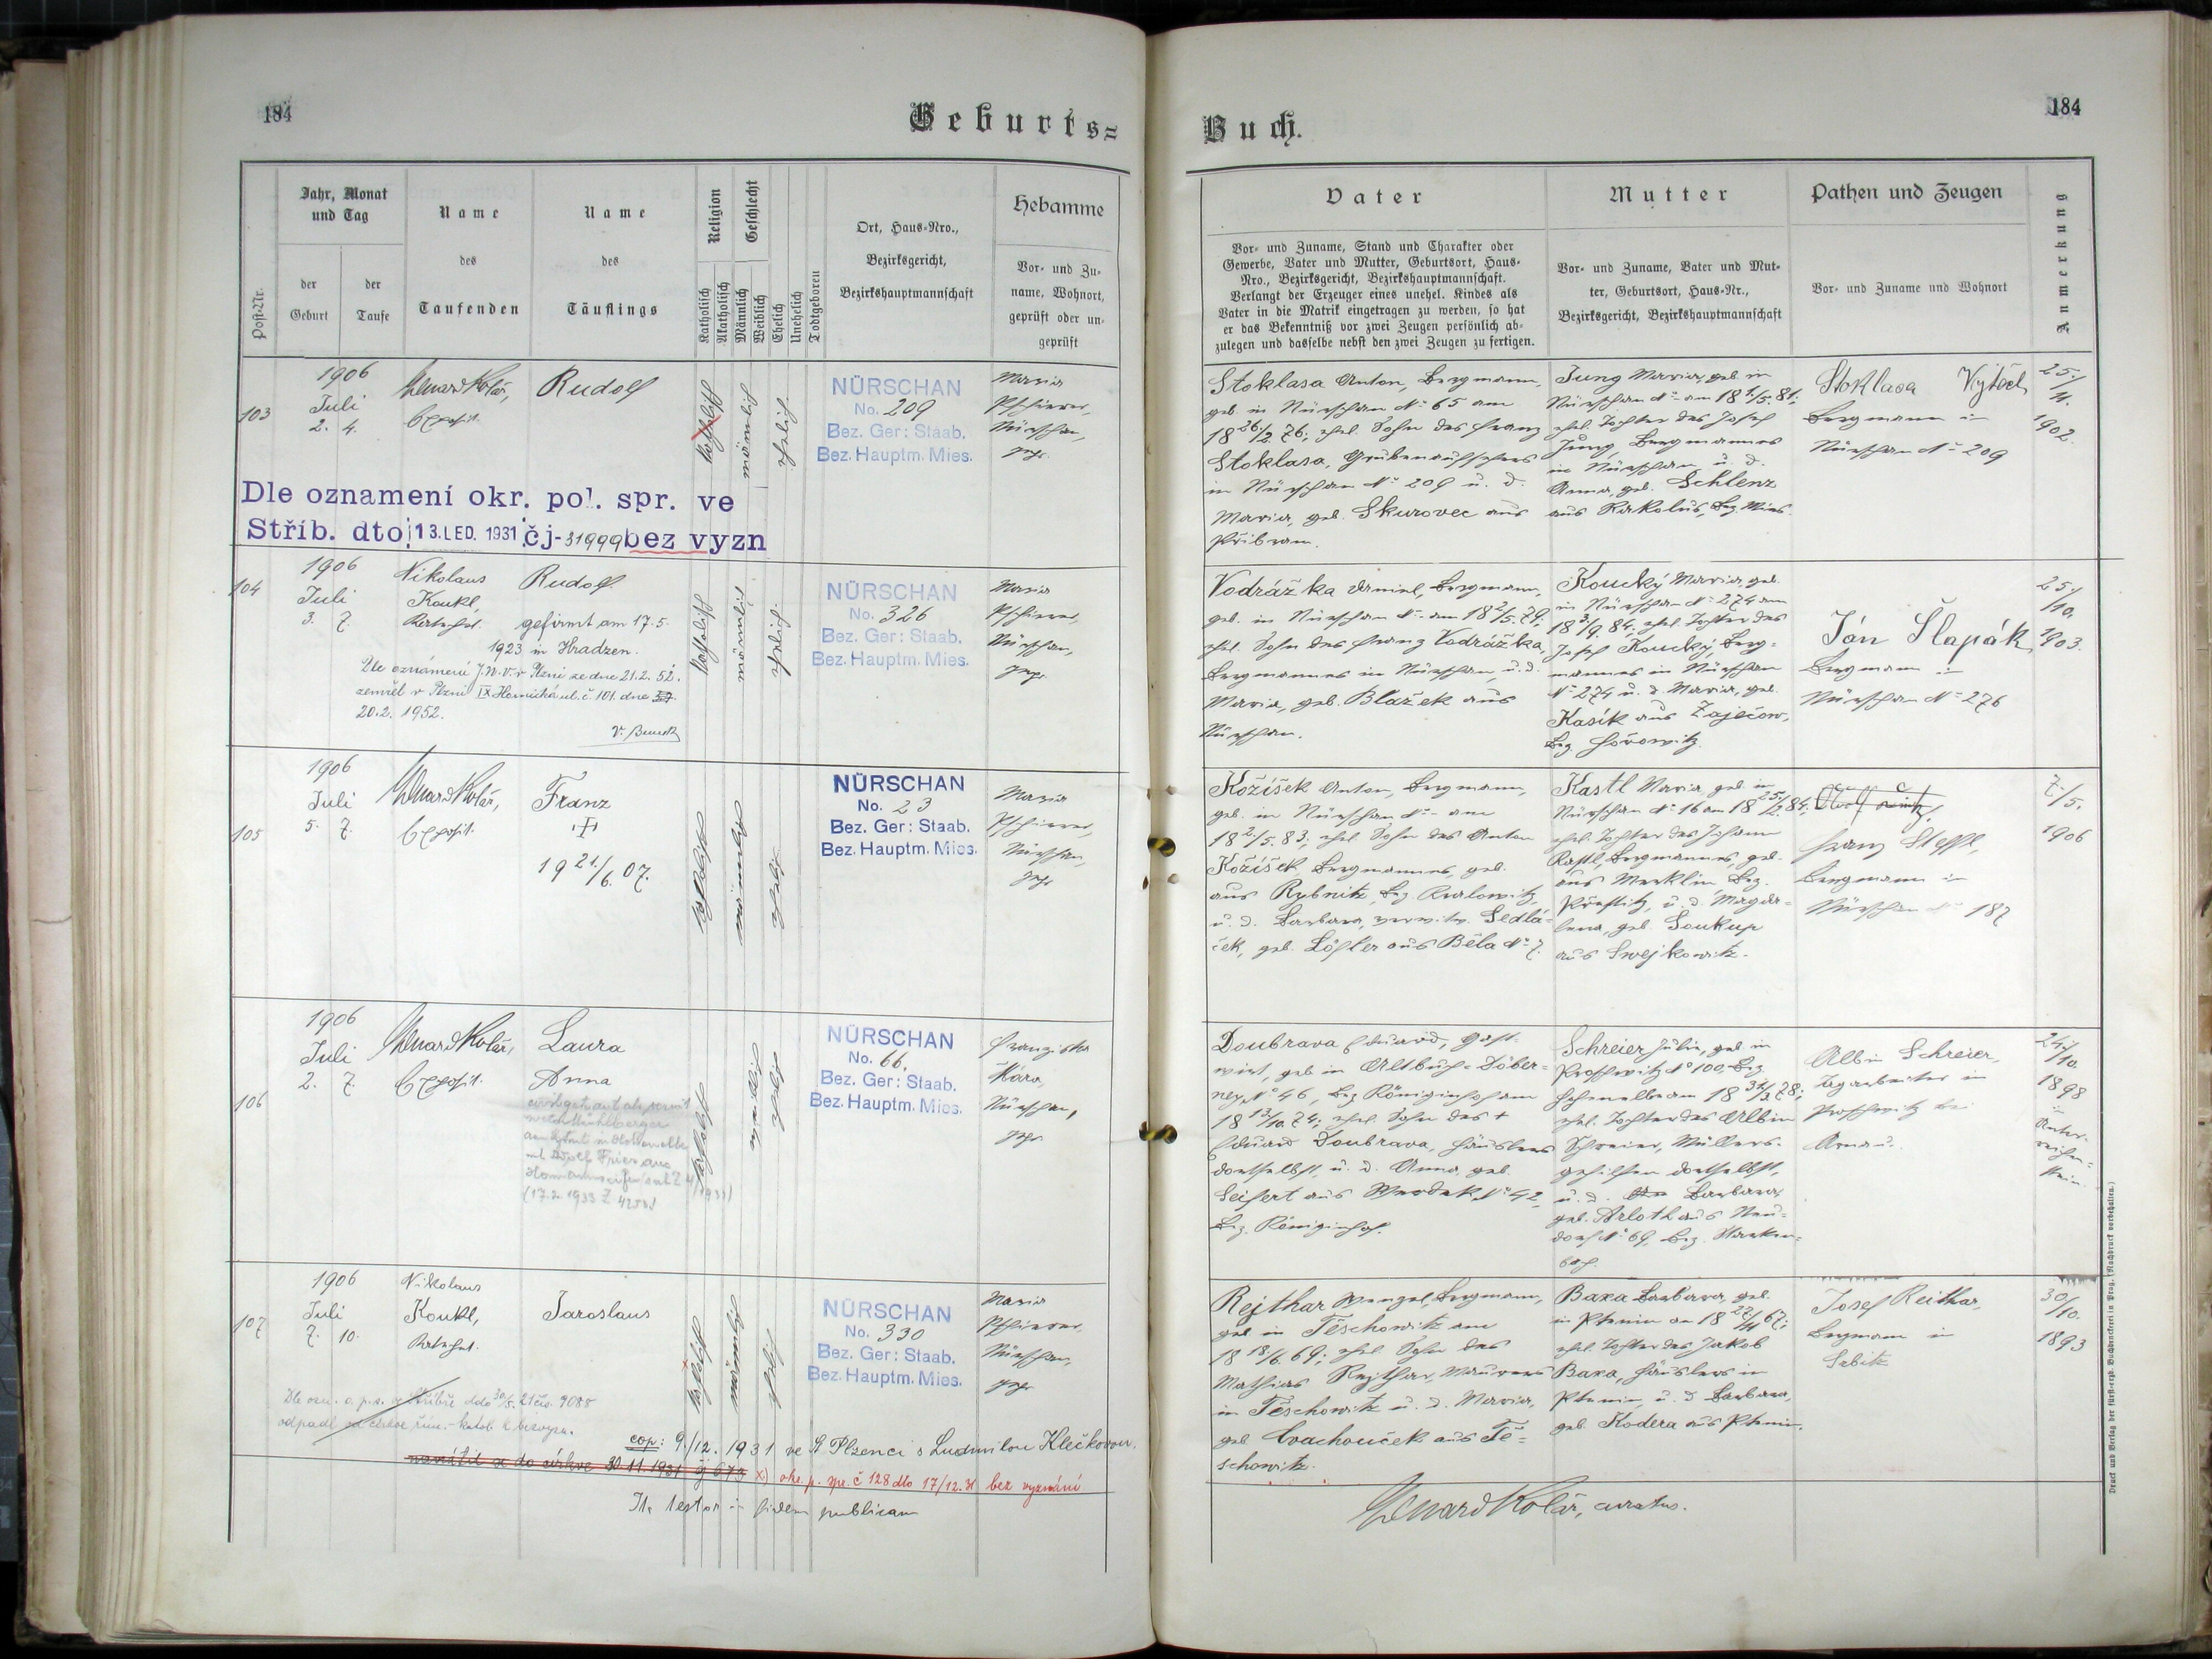 184
Geburts=
Post-Nr.
Jahr, Monat
und Tag
der
Geburt
der
Taufe
Name
des
Taufenden
Name
des
Täuflings
Religion
Katholisch
Akatholisch
Geschlecht
Männlich
Weiblich
Ehelich
Unehelich
Todtgeboren
Ort, Haus-Nro.,
Bezirksgericht,
Bezirkshauptmannschaft
Hebamme
Vor- und Zu-
name, Wohnort,
geprüft oder un-
geprüft
103
1906
Juli
2. 4.
Eduard Kolář,
Exposit.
Rudolf
katholisch
männlich
ehelich
NÜRSCHAN
No. 209
Bez. Ger: Staab.
Bez. Hauptm. Mies.
Maria
Nürschan,
gepr.
Dle oznamení okr. pol. spr. ve
Stříb. dto 13. LED. 1931 čj-31999 bez vyzn
104
1906
Juli
3. 7.
Nikolaus
Koukl,
Katechet.
Rudolf.
gefirmt am 17.5.
1923 in Hradzen.
Dle oznámení J.N.V. v Plzni ze dne 21.2. 52.
zemřel v Plzni IX ul. č. 101. dne
20.2. 1952.
katholisch
männlich
ehelich
NÜRSCHAN
No. 326
Bez. Ger: Staab.
Bez. Hauptm. Mies.
Maria
Nürschan,
gepr.
105
1906
Juli
5. 7.
Eduard Kolář,
Exposit.
Franz
19 21./6. 07.
katholisch
männlich
ehelich
NÜRSCHAN
No. 23
Bez. Ger: Staab.
Bez. Hauptm. Mies.
Maria
Nürschan,
gepr
106
1906
Juli
2. 7.
Eduard Kolář,
Exposit.
Laura
Anna
katholisch
weiblich
ehelich
NÜRSCHAN
No. 66.
Bez. Ger: Staab.
Bez. Hauptm. Mies.
Franziska
Nürschan,
gepr.
107
1906
Juli
7. 10.
Nikolaus
Koukl,
Katechet.
Jaroslaus
katholisch
männlich
ehelich
NÜRSCHAN
No. 330
Bez. Ger: Staab.
Bez. Hauptm. Mies.
Maria
Nürschan,
gepr
Dle ozn. o. p. s. v Stříbře ddo 30/5. 21 čís. 9085
odpadl od církve řím.-katol. k bezvyzn.
cop: 9./12. 1931 ve St Plzenci s Ludmilou Klečkovou.
navrátil se do církve 30.11.1931 čj 673 x) okr. p. spr. č 128 dto 17/12.31 bez vyznání
Ita testor in fidem publicam
184
Buch.
Vater
Vor- und Zuname, Stand und Charakter oder
Gewerbe, Vater und Mutter, Geburtsort, Haus-
Nro., Bezirksgericht, Bezirkshauptmannschaft.
Verlangt der Erzeuger eines unehel. Kindes als
Vater in die Matrik eingetragen zu werden, so hat
er das Bekenntniß vor zwei Zeugen persönlich ab-
zulegen und dasselbe nebst den zwei Zeugen zu fertigen.
Mutter
Vor- und Zuname, Vater und Mut-
ter, Geburtsort, Haus-Nr.,
Bezirksgericht, Bezirkshauptmannschaft
Pathen und Zeugen
Vor- und Zuname und Wohnort
Anmerkung
Stoklasa Anton, Bergmann,
geb. in Nürschan No 65 am
18 26./2. 76; ehel. Sohn des Franz
Stoklasa, Grubenaufsehers
in Nürschan No 209 u. d.
Maria, geb. Skurovec aus
Přibram.
Jung Maria, geb. in
Nürschan No - am 18 4./5. 81;
ehel. Tochter des Josef
Jung, Bergmannes
in Nürschan, u. d.
Anna, geb. Schlenz
aus Rakolus, Bez. Mies.
Stoklasa Vojtěch
Bergmann in
Nürschan No 209
25./
11.
1902.
Vodrážka Daniel, Bergmann,
geb. in Nürschan No - am 18 2./5. 79;
ehel. Sohn des Franz Vodrážka,
Bergmannes in Nürschan, u. d.
Maria, geb. Blažek aus
Nürschan.
Koucký Maria, geb.
in Nürschan No 274 am
18 3./9. 84; ehel. Tochter des
Josef Koucký, Berg-
mannes in Nürschan
No 274 u. d. Maria, geb.
Kasík aus Zaječow,
Bez. Hořowitz.
Ján Šlapák
Bergmann in
Nürschan No 276
25./
10.
1903.
Kožíšek Anton, Bergmann,
geb. in Nürschan No - am
18 2./5. 83; ehel. Sohn des Anton
Kožíšek, Bergmannes, geb.
aus Rybnitz, Bez. Kralowitz,
u. d. Barbara, verwitw. Sedlá-
ček, geb. Löfler aus Běla No 7.
Kastl Maria, geb. in
Nürschan No 16 am 18 25./2. 84;
ehel. Tochter des Johann
Kastl, Bergmannes, geb.
aus Merklin, Bez.
Přestitz, u. d. Magda-
lena, geb. Soukup
aus Swejkowitz.
Franz Steffl,
Bergmann in
Nürschan No 187
7./5.
1906
Doubrava Eduard, Gast-
wirt, geb. in Altbuch-Döber-
ney No 46, Bez. Königinhof am
18 13/10. 74; ehel. Sohn des +
Eduard Doubrava, Häuslers
dortselbst, u. d. Anna, geb.
Seifert aus Werdek No 42,
Bez. Königinhof.
Schreier Julie, geb. in
Proschwitz No 100, Bez.
Hohenelbe am
ehel. Tochter des Albin
Schreier, Müllers-
gehilfen dortselbst,
u. d. Barbara,
geb. Arloth aus Neu-
dorf No 69, Bez. Starken-
bach.
Albin Schreier,
in
Proschwitz bei
Arnau.
24./
10.
1898
in
Unter-
reichen-
stein.
Rejthar Wenzel, Bergmann,
geb. in Těschowitz am
18 18/6. 69; ehel. Sohn des
Mathias Rejthar, Maurers
in Těschowitz u. d. Maria,
geb. Cvachouček aus Tě-
schowitz.
Baxa Barbara, geb.
in Ptenin am
ehel. Tochter des Jakob
Baxa, Häuslers in
Ptenin, u. d. Barbara,
geb. Kodera aus Ptenin.
Josef Reithar,
Bergmann in
Srbitz
30/
10.
1893
Eduard Kolář, curatus.
Druck und Verlag der fürst-erzb. Buchdruckerei in Prag. (Nachdruck vorbehalten.)